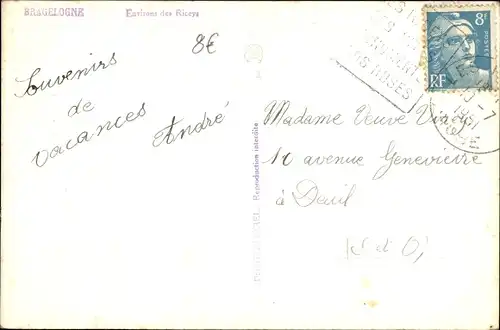 BRAGELOGNE Environs des Riceys
8€
Souvenirs
de
vacances
André
8F
POSTES
RF
1951
Reproduction interdite
Madame Veuve
10 avenue Geneviève
à Deuil
(S et O)